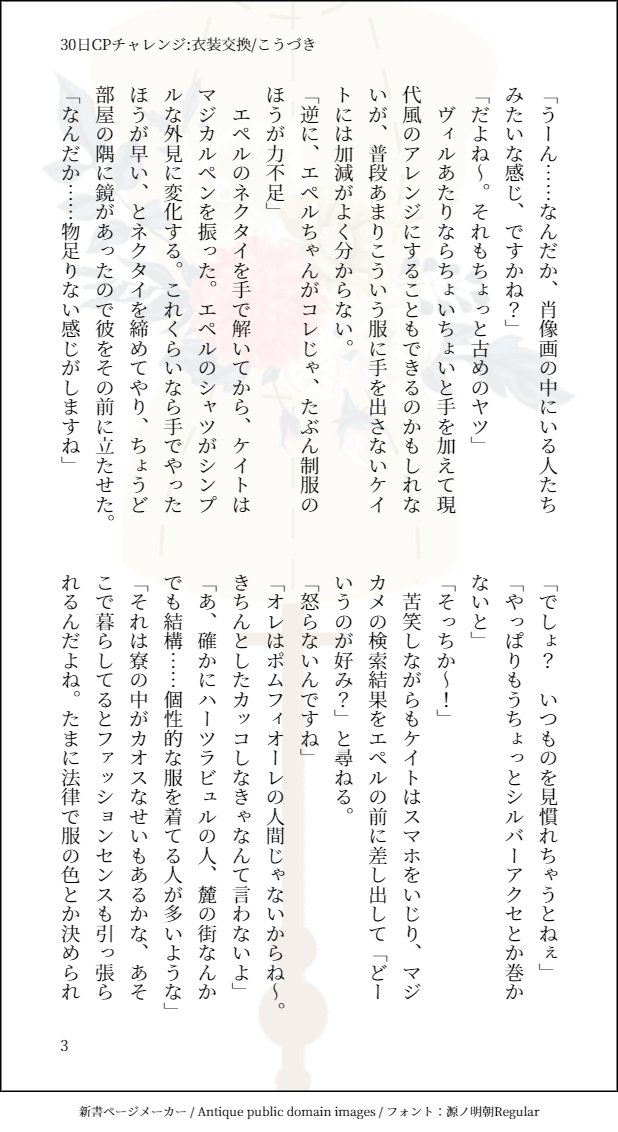 30日CPチャレンジ:衣装交換/こうづき
「うーん……なんだか、肖像画の中にいる人たち
みたいな感じ、ですかね？」
「だよね〜。それもちょっと古めのヤツ」
　ヴィルあたりならちょいちょいと手を加えて現
代風のアレンジにすることもできるのかもしれな
いが、普段あまりこういう服に手を出さないケイ
トには加減がよく分からない。
「逆に、エペルちゃんがコレじゃ、たぶん制服の
ほうが力不足」
　エペルのネクタイを手で解いてから、ケイトは
マジカルペンを振った。エペルのシャツがシンプ
ルな外見に変化する。これくらいなら手でやった
ほうが早い、とネクタイを締めてやり、ちょうど
部屋の隅に鏡があったので彼をその前に立たせた。
「なんだか……物足りない感じがしますね」
「でしょ？　いつものを見慣れちゃうとねぇ」
「やっぱりもうちょっとシルバーアクセとか巻か
ないと」
「そっちか〜！」
　苦笑しながらもケイトはスマホをいじり、マジ
カメの検索結果をエペルの前に差し出して「どー
いうのが好み？」と尋ねる。
「怒らないんですね」
「オレはポムフィオーレの人間じゃないからね〜。
きちんとしたカッコしなきゃなんて言わないよ」
「あ、確かにハーツラビュルの人、麓の街なんか
でも結構……個性的な服を着てる人が多いような」
「それは寮の中がカオスなせいもあるかな、あそ
こで暮らしてるとファッションセンスも引っ張ら
れるんだよね。たまに法律で服の色とか決められ
3
新書ページメーカー / Antique public domain images / フォント：源ノ明朝Regular